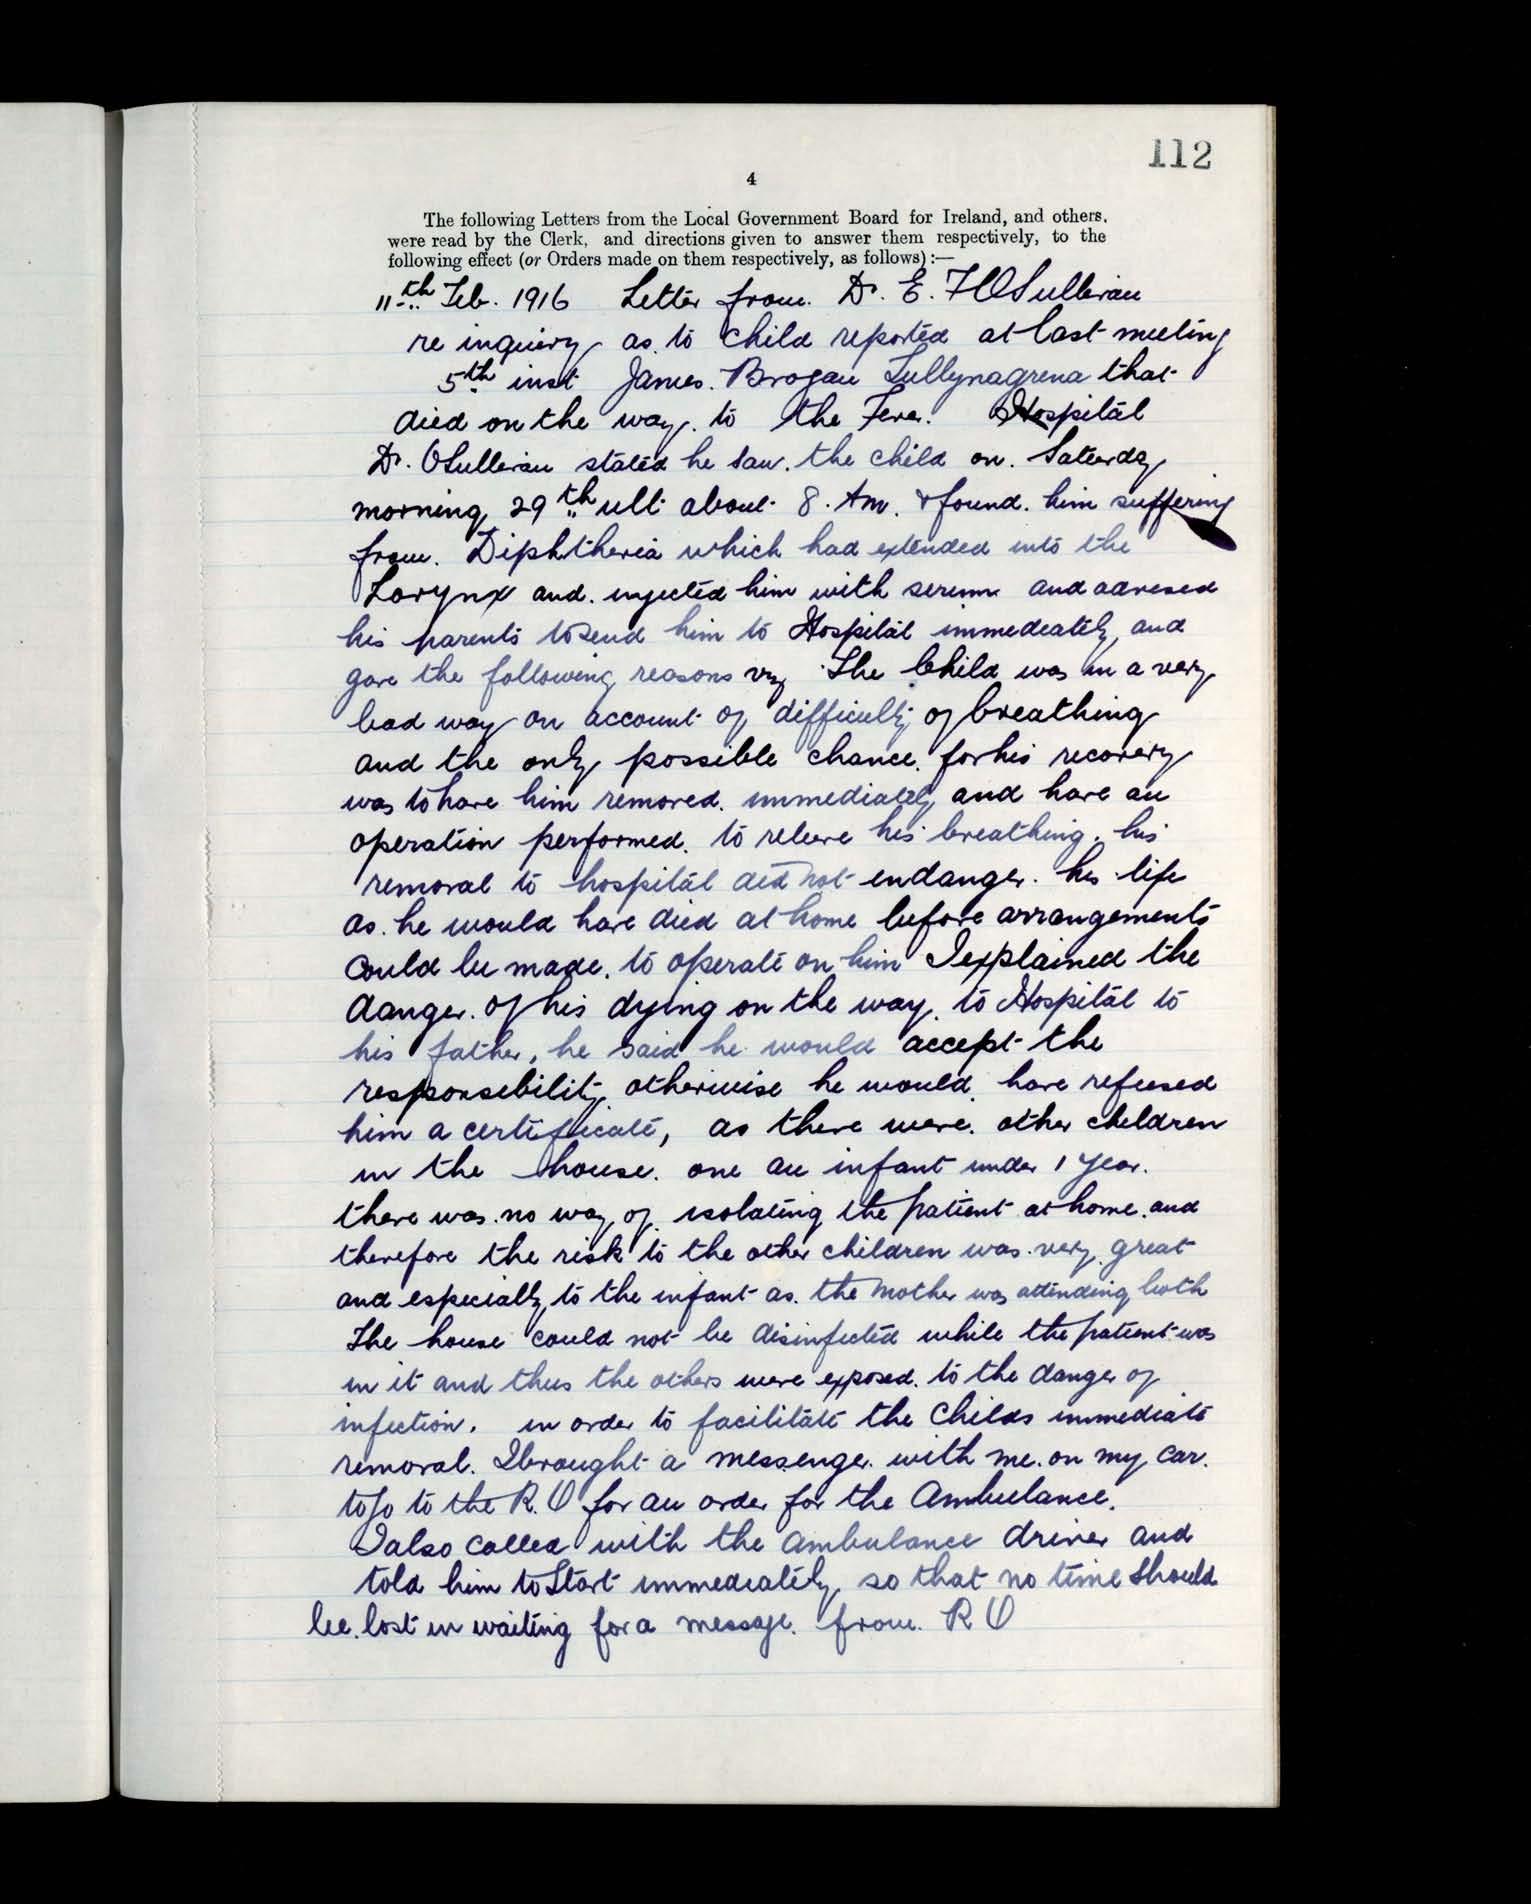 112
4
The following Letters from the Local Government Board for Ireland, and others.
were read by the Clerk, and directions given to answer them respectively, to the
following effect (or Orders made on them respectively, as follows):—
11th Feb. 1916 Letter from Dr. E. F O'Sullivan
re inquiry as to child reported at last meeting
5th inst James Brogan Tullynagrena that
died on the way to the Fever Hospital
Dr. OSullivan stated he saw the child on Saturday
morning 29th ult about 8. Am. & found him suffering
from Diphtheria which had extended into the
Larynx and injected him with serum and advised
his parents to send him to Hospital immediately, and
gave the following reasons viz The Child was in a very
bad way on account of difficulty of breathing
and the only possible chance for his recovery
was to have him removed immediately and have an
operation performed to releive his breathing. his
removal to hospital did not endanger his life
as he would have died at home before arrangements
could be made to operate on him I explained the
danger of his dying on the way to Hospital to
his father, he said he would accept the
responsibility otherwise he would have refused
him a certificate, as there were other children
in the house one an infant under 1 year.
there was no way of isolating the patient at home and
therefore the risk to the other children was very great
and especially to the infant as the mother was attending both
The house could not be disinfected while the patient was
in it and thus the others were exposed to the danger of
infection. in order to facilitate the Childs immediate
removal. I brought a messenger with me on my car.
to go to the R.O for an order for the Ambulance.
I also called with the ambulance driver and
told him to Start immediately so that no time should
be lost in waiting for a message from R O